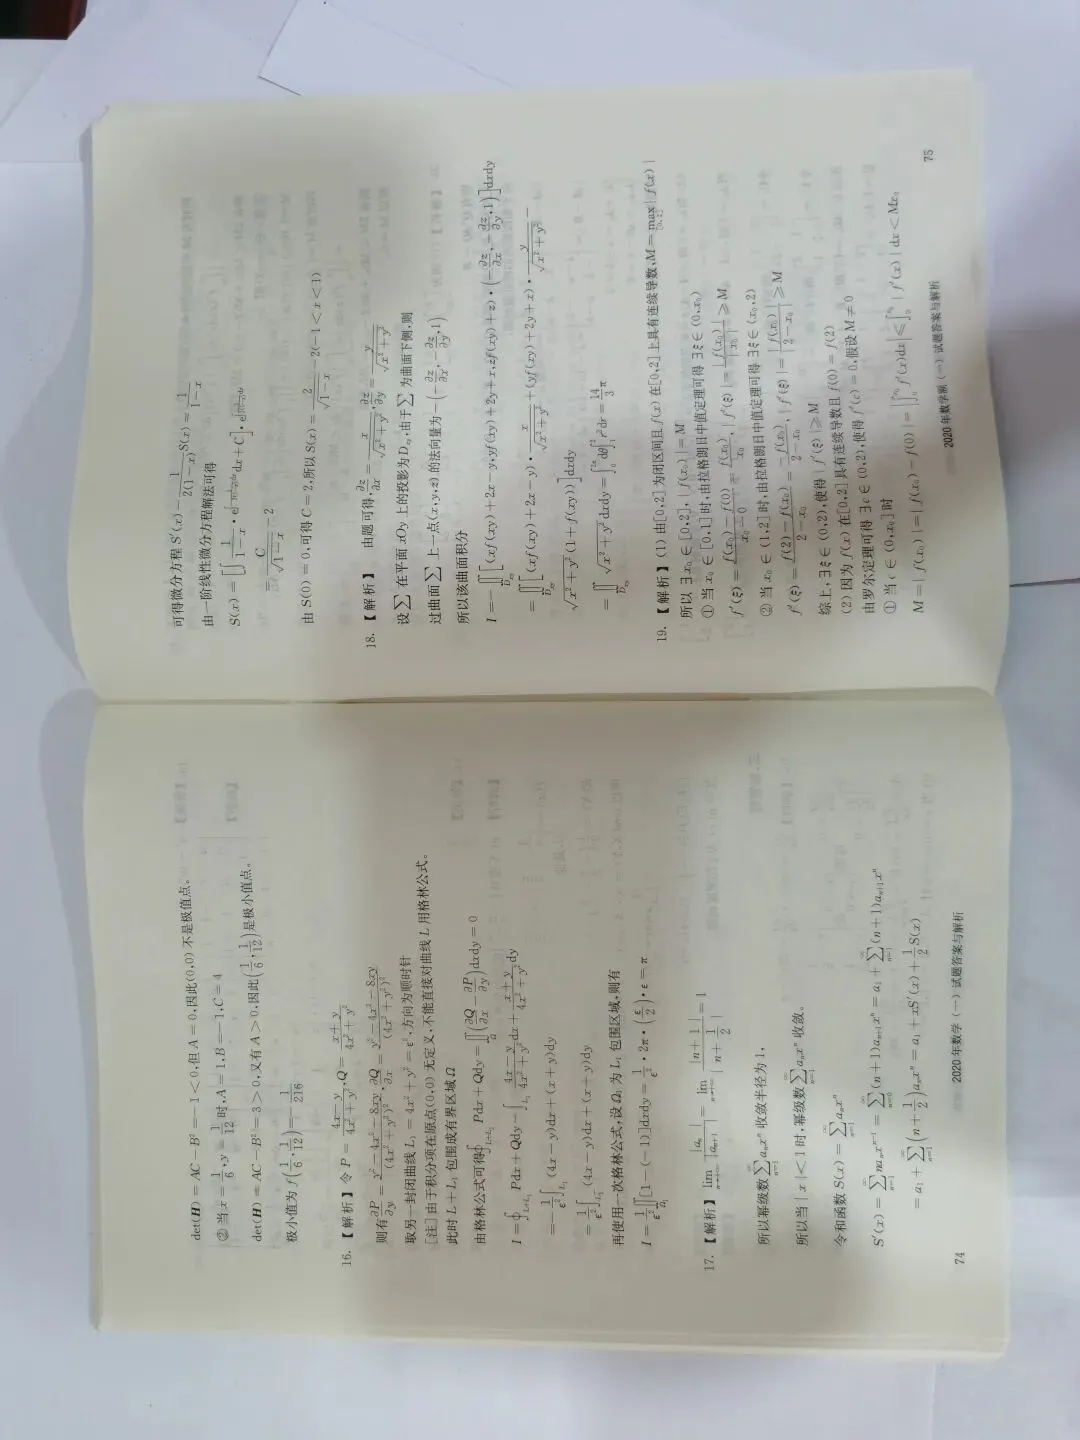 det(H) = AC − B² = −1 < 0,但 A = 0,因此(0,0)不是极值点。
② 当 x = 1/6, y = 1/12 时,A = 1,B = −1,C = 4
det(H) = AC − B² = 3 > 0,又有 A > 0,因此(1/6, 1/12)是极小值点。
极小值为 f(1/6, 1/12) = −1/216
16.【解析】令 P = (4x − y)/(4x² + y²), Q = (x + y)/(4x² + y²)
则有 ∂P/∂y = (y² − 4x² − 8xy)/(4x² + y²)², ∂Q/∂x = (y² − 4x² − 8xy)/(4x² + y²)²
取另一封闭曲线 L₁ = 4x² + y² = ε²,方向为顺时针
[注]由于积分项在原点(0,0)无定义,不能直接对曲线 L 用格林公式。
此时 L + L₁ 包围成有界区域 Ω
由格林公式可得∮_{L+L₁} Pdx + Qdy = ∬_Ω (∂Q/∂x − ∂P/∂y) dxdy = 0
I = ∮_{L+L₁} Pdx + Qdy − ∫_{L₁} (4x − y)/(4x² + y²) dx + (x + y)/(4x² + y²) dy
= −1/ε² ∫_{L₁} (4x − y)dx + (x + y)dy
= 1/ε² ∫_{L₁⁻} (4x − y)dx + (x + y)dy
再使用一次格林公式,设 Ω₁ 为 L₁ 包围区域,则有
I = 1/ε² ∬_{Ω₁} [1 − (−1)]dxdy = 1/ε² · 2π · (ε/2) · ε = π
17.【解析】 lim_{n→∞} |aₙ/aₙ₊₁| = lim_{n→∞} |n + 1|/|n + 1/2| = 1
所以幂级数 ∑_{n=1}^∞ aₙxⁿ 收敛半径为 1,
所以当 | x | < 1 时,幂级数 ∑_{n=1}^∞ aₙxⁿ 收敛。
令和函数 S(x) = ∑_{n=1}^∞ aₙxⁿ
S′(x) = ∑_{n=1}^∞ naₙxⁿ⁻¹ = ∑_{n=0}^∞ (n + 1)aₙ₊₁xⁿ = a₁ + ∑_{n=1}^∞ (n + 1)aₙ₊₁xⁿ
= a₁ + ∑_{n=1}^∞ (n + 1/2) aₙxⁿ = a₁ + xS′(x) + 1/2 S(x)
74
2020 年数学(一)试题答案与解析
可得微分方程 S′(x) − 1/(2(1 − x)) S(x) = 1/(1 − x)
由一阶线性微分方程解法可得
= C/√(1 − x) − 2
由 S(0) = 0,可得 C = 2,所以 S(x) = 2/√(1 − x) − 2(−1 < x < 1)
18.【解析】 由题可得,∂z/∂x = x/√(x² + y²), ∂z/∂y = y/√(x² + y²)
设∑在平面 xOy 上的投影为 Dₓᵧ,由于∑为曲面下侧,则
过曲面∑上一点(x,y,z)的法向量为 −(−∂z/∂x, −∂z/∂y, 1)
所以该曲面积分
I = −∬_{Dxy} [(xf(xy) + 2x − y, yf(xy) + 2y + x, zf(xy) + z) · (−∂z/∂x, −∂z/∂y, 1)]dxdy
= ∬_{Dxy} [(xf(xy) + 2x − y) · x/√(x² + y²) + (yf(xy) + 2y + x) · y/√(x² + y²) −
√(x² + y²)(1 + f(xy))]dxdy
= ∬_{Dxy} √(x² + y²) dxdy = ∫₀^{2π} dθ ∫₁² r²dr = 14/3 π
19.【解析】(1) 由[0,2]为闭区间且 f(x)在[0,2]上具有连续导数,M = max_{[0,2]} | f(x) |
所以 ∃ x₀ ∈ [0,2], | f(x₀) | = M
① 当 x₀ ∈ [0,1]时,由拉格朗日中值定理可得 ∃ ξ ∈ (0,x₀)
f′(ξ) = (f(x₀) − f(0))/(x₀ − 0) = f(x₀)/x₀, | f′(ξ) | = | f(x₀) |/| x₀ | ≥ M
② 当 x₀ ∈ (1,2]时,由拉格朗日中值定理可得 ∃ ξ ∈ (x₀,2)
f′(ξ) = (f(2) − f(x₀))/(2 − x₀) = −f(x₀)/(2 − x₀), | f′(ξ) | = | f(x₀) |/(2 − x₀) ≥ M
综上,∃ ξ ∈ (0,2),使得 | f′(ξ) | ≥ M
(2) 因为 f(x)在[0,2]具有连续导数且 f(0) = f(2)
由罗尔定理可得 ∃ c ∈ (0,2),使得 f′(c) = 0,假设 M ≠ 0
① 当 c ∈ (0,x₀]时
M = | f(x₀) | = | f(x₀) − f(0) | = | ∫₀^{x₀} f′(x)dx | ≤ ∫₀^{x₀} | f′(x) | dx < Mx₀
2020 年数学(一)试题答案与解析
75